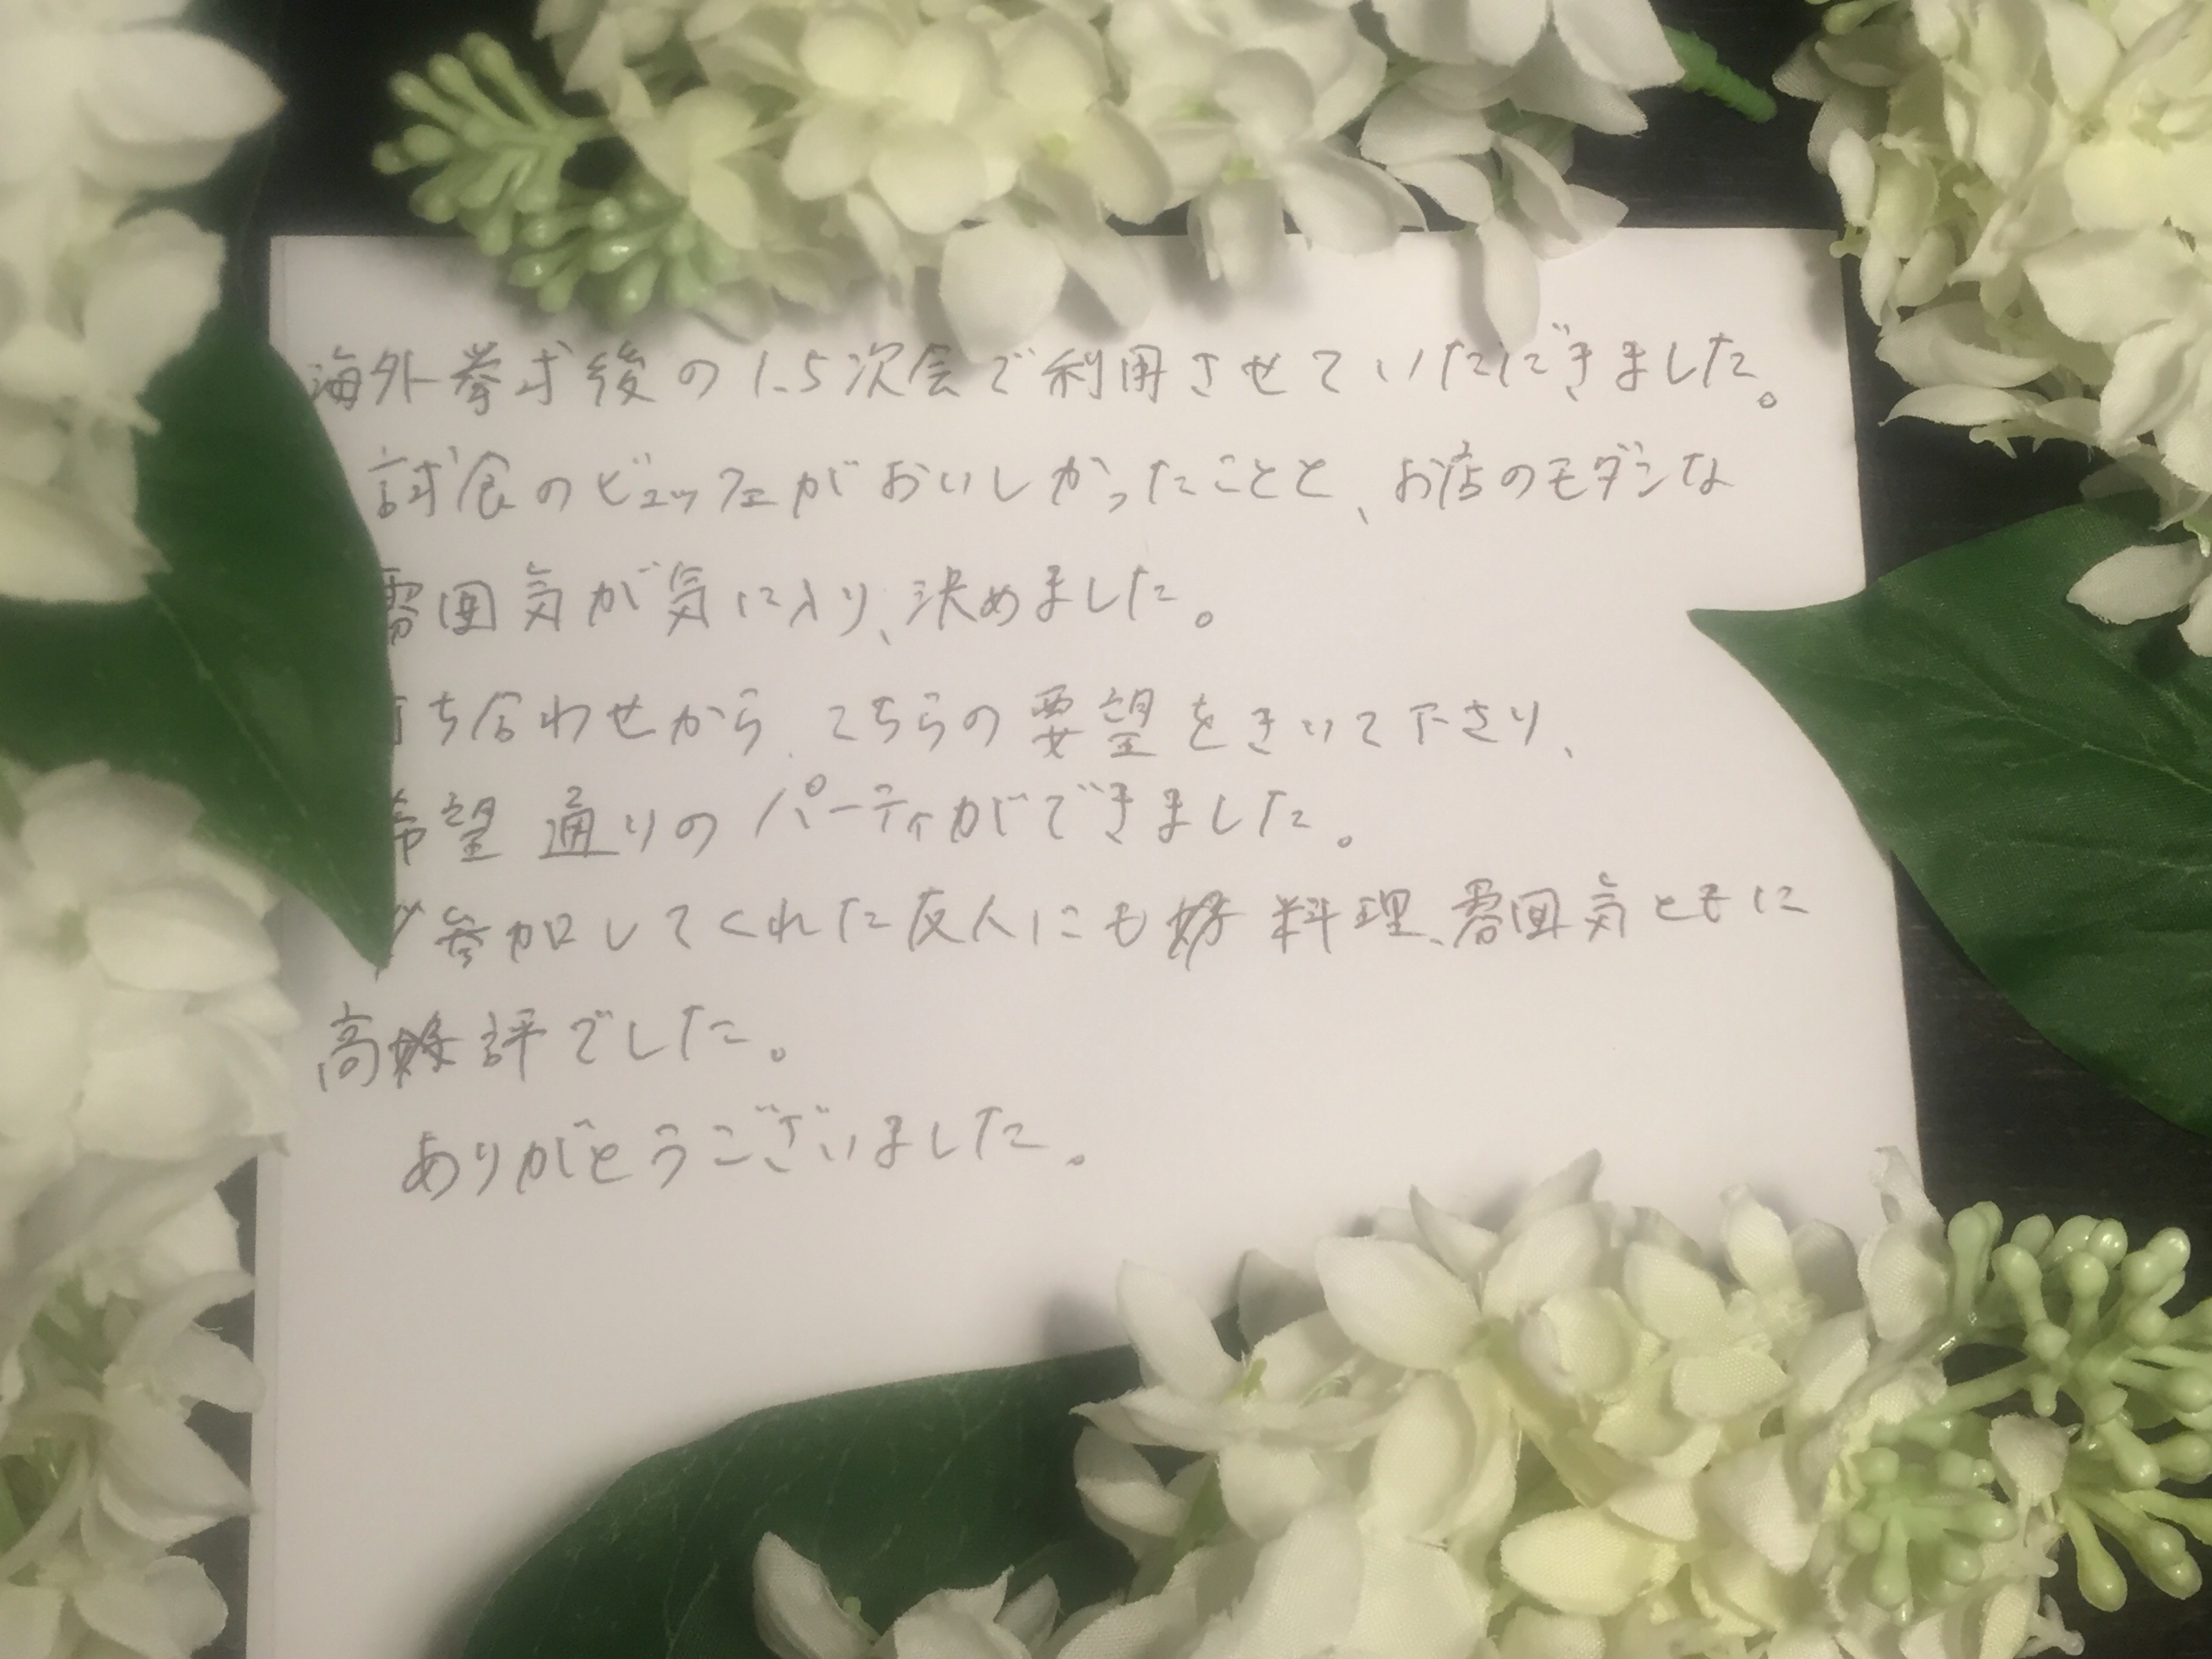 海外挙式後の1.5次会で利用させていただきました。
試食のビュッフェがおいしかったことと、お店のモダンな
雰囲気が気に入り、決めました。
打ち合わせから、こちらの要望をきいて下さり、
希望通りのパーティができました。
参加してくれた友人にも料理、雰囲気ともに
高評でした。
ありがとうございました。